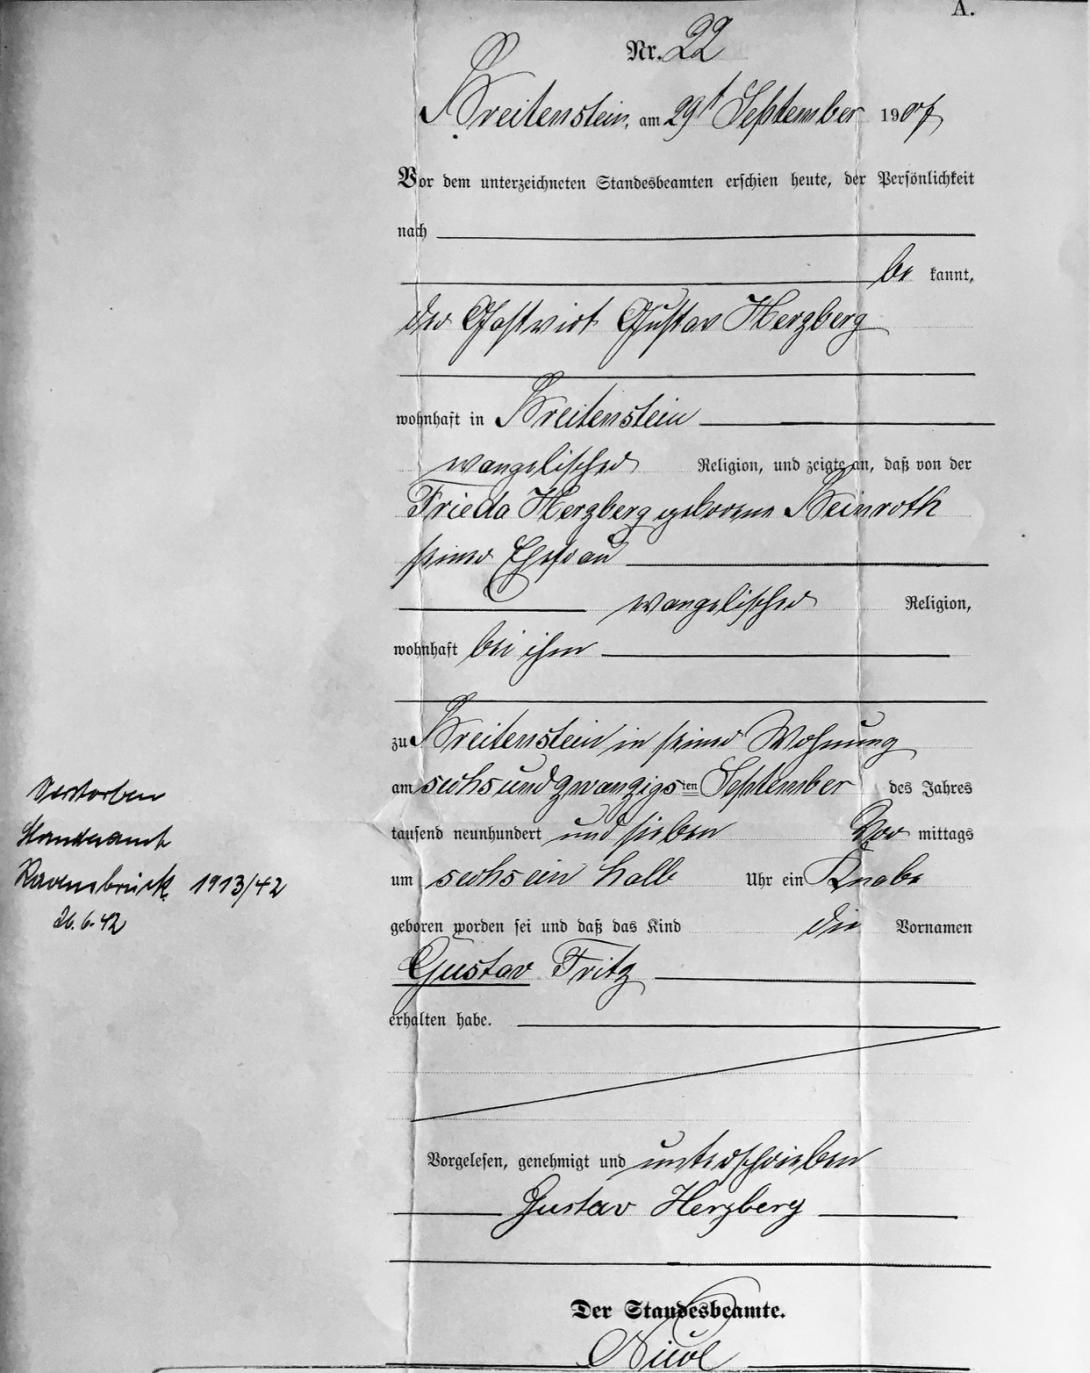 A.
Nr. 22
Breitenstein, am 29t September 1907
Vor dem unterzeichneten Standesbeamten erschien heute, der Persönlichkeit
nach
be kannt,
der Gastwirt Gustav Herzberg
wohnhaft in Breitenstein
evangelischer Religion, und zeigte an, daß von der
Frieda Herzberg geborene Beinroth
seiner Ehefrau
evangelischer Religion,
wohnhaft bei ihm
zu Breitenstein in seiner Wohnung
am sechsundzwanzigsten September des Jahres
tausend neunhundert und sieben Vor mittags
um sechseinhalb Uhr ein Knabe
geboren worden sei und daß das Kind die Vornamen
Gustav Fritz
erhalten habe.
Verstorben
Standesamt
Ravensbrück 1913/42
26.6.42
Vorgelesen, genehmigt und unterschrieben
Gustav Herzberg
Der Standesbeamte.